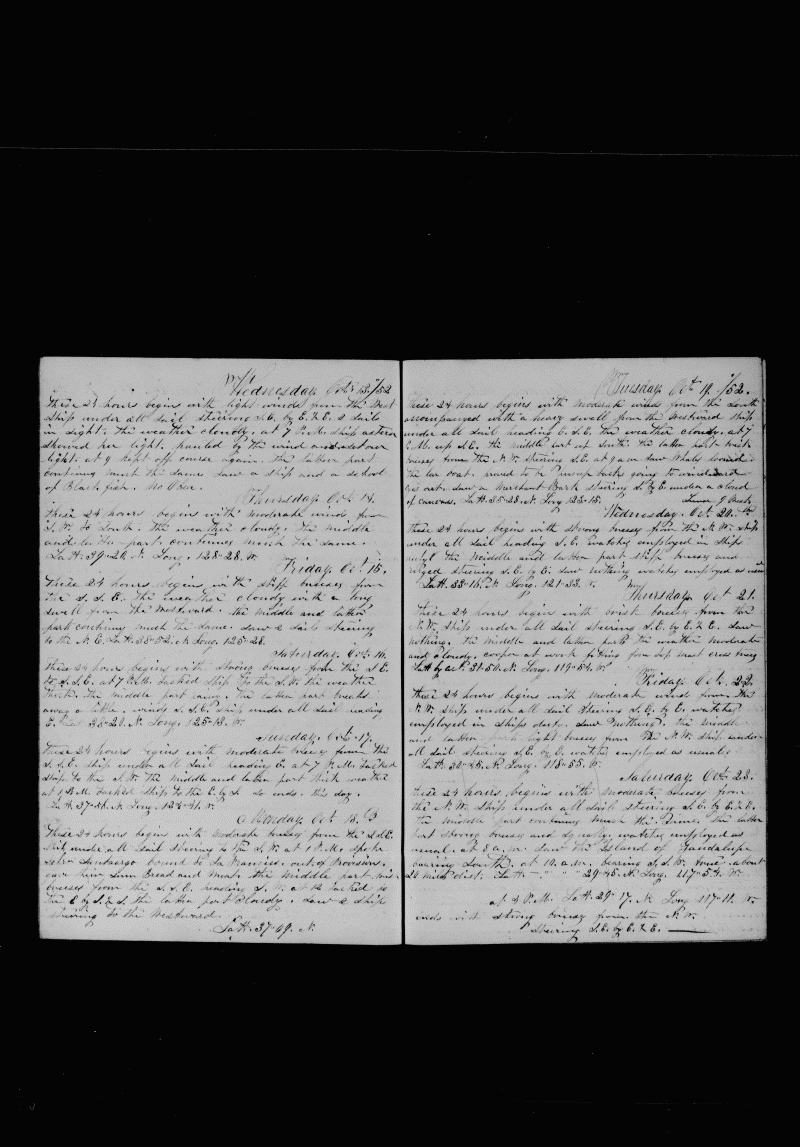 Wednesday Oct 13/52
These 24 hours begins with light winds from the West
Ship under all sail steering S.E. by E.½E. 2 sails
in sight. the weather cloudy. at 7 P.M. ship astern
showed her light. hauled by the wind and set our
light. at 9 kept off course again. the latter part
continus much the same. saw a ship and a school
of Black fish. No Obsr.
Thursday. Oct. 14.
These 24 hours begins with moderate winds from
S.W. to South. the weather cloudy. the middle
and latter part continues much the same.
Latt. 39-26. N. Long. 128-28. W.
Friday. Oct. 15.
These 24 hours begins with stiff breeses from
the S.S.E. the weather cloudy with a long
swell from the Westward. the middle and latter
part continus much the same. saw 2 sails steering
to the N.E. Latt. 38-52. N. Long. 125-28.
Saturday. Oct. 16.
These 24 hours begins with strong breeses from the S.E.
to S.S.E. at 7 P.M. tacked ship to the S.W. the weather
thick. the middle part rainy. the latter part breaks
away a little. winds S.S.E. ship under all sail heading
E. 38-20. N. Long. 125-13. W.
Sunday. Oct. 17.
These 24 hours begins with moderate breeses from the
S.S.E. ship under all sail heading E. at 7 P.M. tacked
ship to the S.W. the middle and latter part thick weather
at 9 A.M. tacked ship to the E. by S. so ends this day.
Latt. 37-51. N. Long. 125-41. W.
Monday. Oct. 18.
These 24 hours begins with moderate breeses from the S.S.E.
Ship under all sail steering to the S.W. at 1 P.M. spoke
bound to San Francisco. out of Provisions.
gave him sum Bread and Meat. the middle part
breeses from the S.S.E. heading S.W. at 12 tacked to
the E by S.½S. the latter part cloudy. saw 2 ships
steering to the Westward.
Latt. 37-49. N.
Tuesday. Oct. 19. /52.
These 24 hours begins with moderate winds from the South
accompanied with a heavy swell from the Westward ship
under all sail heading E.S.E. the weather cloudy. at 7
P.M. up S.E. the middle part up South. the latter part brisk
breeses from the N.W. steering S.E. at 9 a.m. saw Whales
the boat. proved to be humpbacks going to windward
saw a Merchant Bark steering S. by E. under a cloud
of canvas. Latt. 35-28. N. Long. 123-15.
Wednesday. Oct. 20.th
These 24 hours begins with strong breeses from the N.W. ship
under all sail heading S.E. watches employed in ships
duty. the middle and latter part stiff breeses and
steering S.E. by E. saw nothing watches employed as usual
Latt. 33-16. N. Long. 121-33. W.
Thursday. Oct. 21.
These 24 hours begins with brisk breeses from the
N.W. ship under all sail steering S.E. by E.½E. saw
nothing. the middle and latter part the weather moderate
and cloudy. cooper at work fitting fore top mast cross trees
Latt by ac. 31-50. N. Long. 119-54. W.
Friday. Oct. 22.
These 24 hours begins with moderate wind from the
N.W. ship under all sail steering S.E. by E. watches
employed in ships duty. saw nothing. the middle
and latter part light breeses from the N.W. ship under
all sail steering S.E. by E. watches employed as usual.
Latt. 30-45. N. Long. 118-55. W.
Saturday. Oct. 23.
These 24 hours begins with moderate breeses from
the N.W. ship under all sail steering S.E. by E.½E.
the middle part continus much the same. the latter
part strong breeses and squaly. watches employed as
usual. at 8 a.m. saw the Island of Guadalupe
bearing South. at 10. a.m. bearing S.S.W. true. about
20 miles dist. Latt. — " " " 29-45. N. Long. 117-54. W.
at 3 P.M. Latt. 29-17. N. Long. 117-11. W.
ends with strong breeses from the N.W.
steering S.E. by E.½E. ——